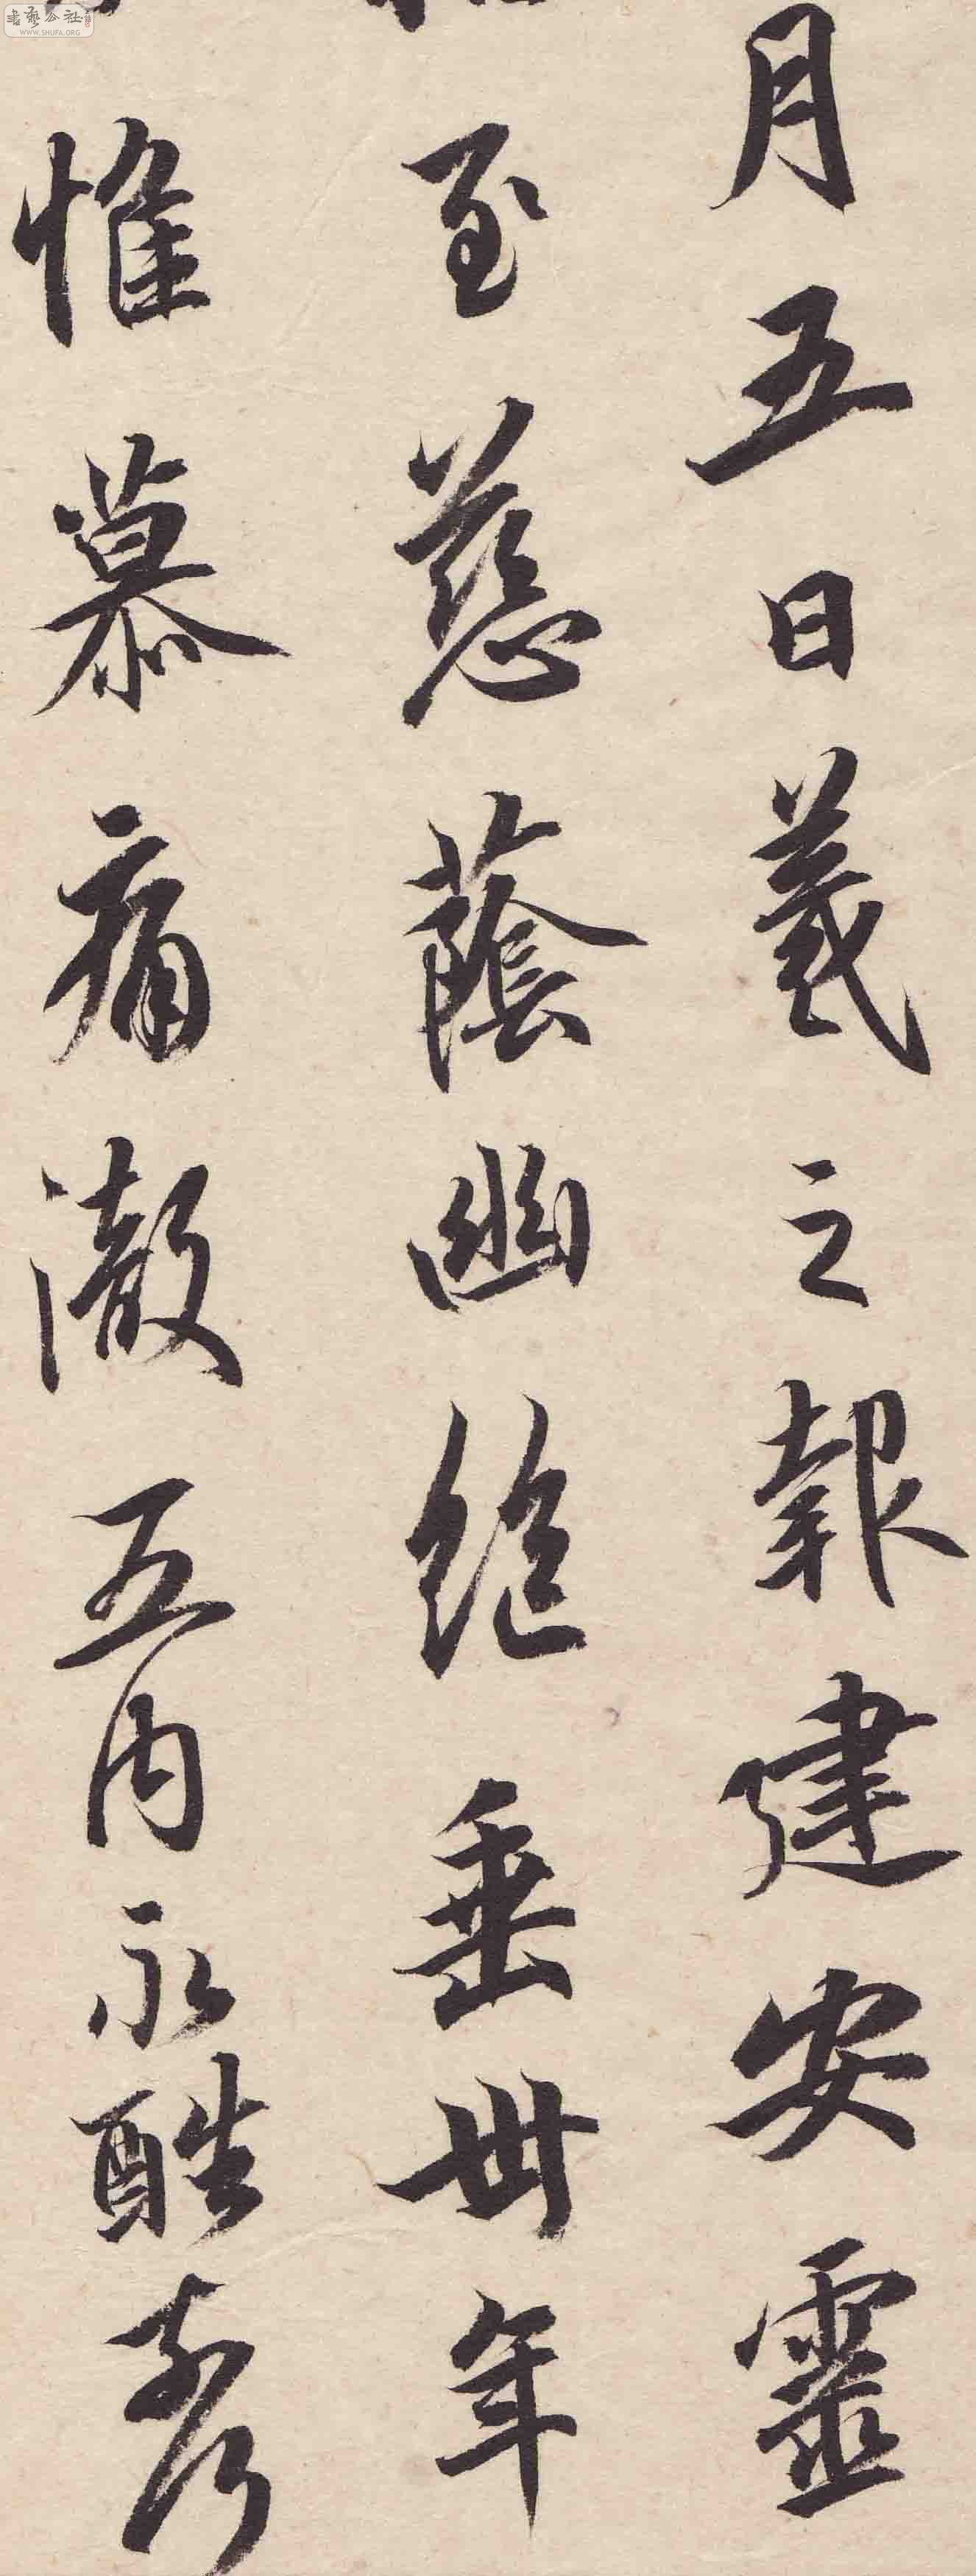 月五日羲之報建安靈
至慈蔭幽絕垂卅年
惟慕痛徹五內永酷奈何
書藝公社
WWW.SHUFA.ORG